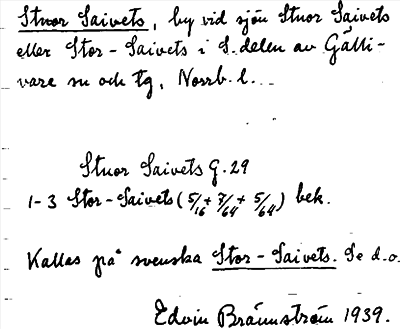 Stuor Saivets, by vid sjön Stuor Saivets
eller Stor-Saivets i S. delen av Gälli-
vare sn och tg, Norrb. l.
Stuor Saivets G. 29
1-3 Stor-Saivets (5/16 + 7/64 + 5/64) bek.
Kallas på svenska Stor-Saivets. Se d.o.
Edvin Brännström 1939.